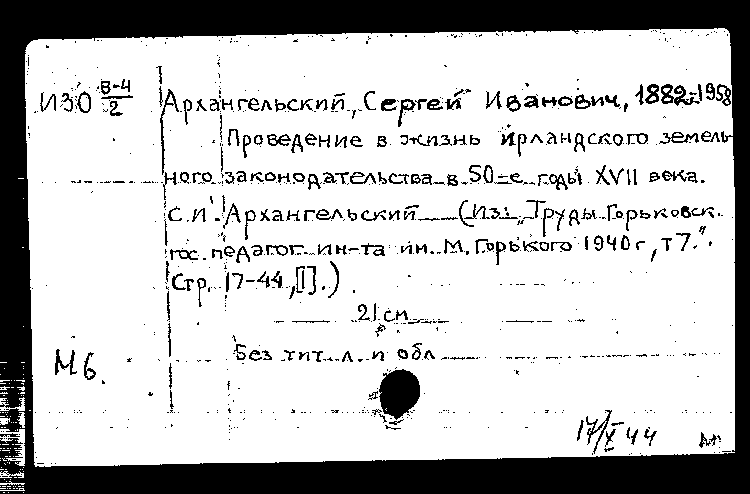 ИЗО В-4/2
Архангельский, Сергей Иванович, 1882-1958
Проведение в жизнь ирландского земель-
ного законодательства в 50-е годы XVII века.
С.И. Архангельский (Из: „Труды Горьковск.
гос. педагог. ин-та им. М. Горького 1940 г, т 7.".
Стр. 17-44, [I].)
21 см
Без тит. л. и обл
М6.
17/X 44